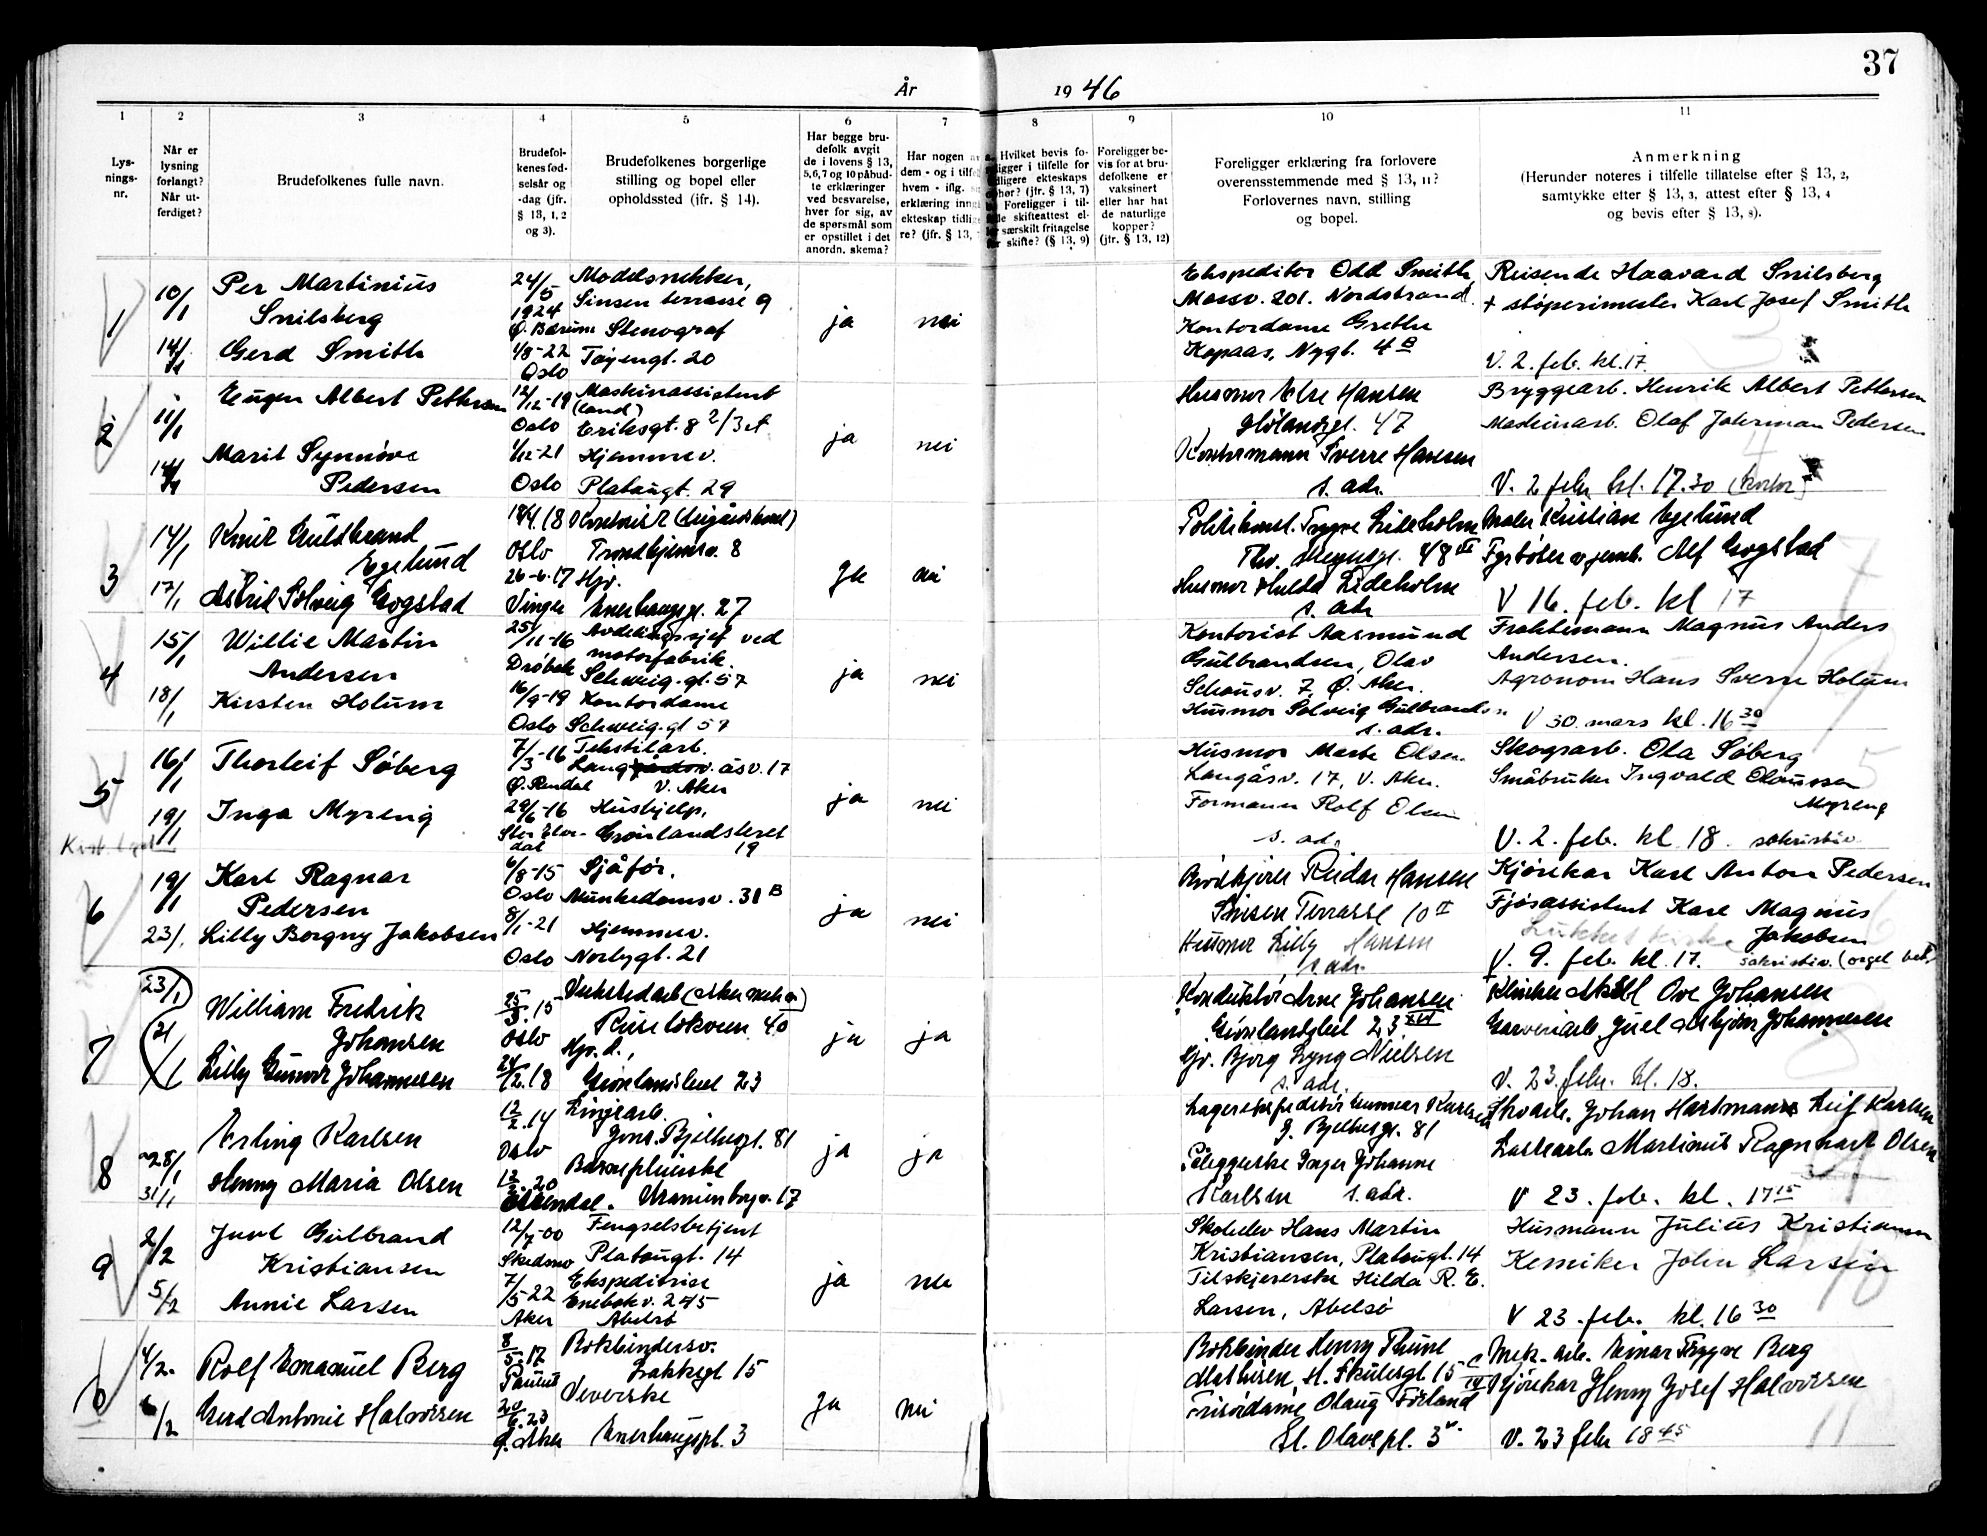 37
År 1946
1 2 3 4 5 6 7 8 9 10 11
Lysningsnr.
Når er lysning forlangt? Når utferdiget?
Brudefolkenes fulle navn.
Brudefolkenes fødselsår og -dag (jfr. § 13, 1, 2 og 3).
Brudefolkenes borgerlige stilling og bopel eller opholdssted (jfr. § 14).
Har begge brudefolk avgitt de i lovens § 13, 5, 6, 7 og 10 påbudte erklæringer ved besvarelse, hver for sig, av de spørsmål som er opstillet i det anordn. skema?
Foreligger bevis for at brudefolkene er vaksinert eller har hat de naturlige kopper? (jfr. § 13, 12)
Foreligger erklæring fra forlovere overensstemmende med § 13, 11? Forlovernes navn, stilling og bopel.
Anmerkning
(Herunder noteres i tilfelle tillatelse efter § 13, 2, samtykke efter § 13, 3, attest efter § 13, 4 og bevis efter § 13, 8).
1
10/1
Per Martinius
Snilsberg
14/1
Gerd Smith
24/5
1924
Ø. Bærum
1/8-22
Oslo
Modellsnekker,
Sinsen terrasse 9
Stenograf
Tøyengt. 20
ja
nei
Ekspeditør Odd Smith,
Mossv. 201. Nordstrand.
Kontordame Grethe
Kopaas, Nygt. 4 B
Reisende Haavard Snilsberg
+ støperimester Karl Josef Smith
V. 2. feb. kl. 17.
2
11/1
Eugen Albert Pettersen
Marit Synnøve
14/1
Pedersen
12/12-19
Oslo
1/12-21
Oslo
Maskinassistent
(land)
Eriksgt. 8 2/3 et
Hjemmev.
Platougt. 29
ja
nei
Husmor Else Hansen
Hølandsgt. 47
Sverre Hansen
s. adr.
Bryggearb. Henrik Albert Pettersen
Maskinarb. Olaf Joherman Pedersen
V. 2 febr kl. 17.30
3
14/1
Knut Guldbrand
Egelund
17/1
Astrid Solveig Gogstad
18/4.18
Oslo
26-6.17
Vinger
Trondhjemsv. 8
Hjv.
Enerhauggt. 27
Ja
nei
Politikonst. Trygve Lideholm
Thv. Meyersgt. 48 III
Husmor Hulda Lideholm
s. adr
Maler Kristian Egelund
Fyrbøter v. jernb. Alf Gogstad
V 16. feb. kl 17
4
15/1
Willie Martin
Andersen
18/1
Kirsten Holum
25/11-16
Drøbak
16/9-19
Oslo
Avdelingssjef ved
motorfabrik.
Schweig.gt. 57
Kontordame
Schweig.gt 57
ja
nei
Kontorist Aasmund
Gulbrandsen, Olav
Schousv. 7, Ø. Aker.
Husmor Solveig Gulbrandsen
s. adr.
Fraktemann Magnus Anders
Andersen.
Agronom Hans Sverre Holum
V 30. mars kl. 16 30
5
16/1
Thorleif Søberg
19/1
Inga Myreng
7/3-16
Ø. Rendal
29/6-16
Stor Elvdal
Tekstilarb.
V. Aker
Hushjelp,
Grønlandsleret
19
ja
nei
Husmor Marte Olsen
Langåsv. 17, V. Aker.
Formann Rolf Olsen
s. adr.
Skogsarb. Ola Søberg
Småbruker Ingvald Olaussen
Myreng
V. 2. feb. kl. 18. sakristiv.
6
19/1
Karl Ragnar
Pedersen
23/1
Lilly Borgny Jakobsen
6/8-15
Oslo
8/1-21
Oslo
Sjåfør.
Munkedamsv. 31 B
Hjemmev.
Norbygt. 21
ja
nei
Brødkjører Reidar Hansen
Sinsen Terrasse 10 II
Husmor Lilly Hansen
s. adr.
Kjørekar Karl Anton Pedersen
Fjøsassistent Karl Magnus
Jakobsen
V. 9. feb. kl. 17. sakristiv. (orgel bet.)
7
23/1
William Fredrik
Johansen
21/1
Lilly Gunvor Johannesen
25/3.15
Oslo
24/2.18
Verkstedarb (Aker mek v)
Ruseløkveien 40
Hjv. d.,
Grønlandsleret 23
ja
ja
Konduktør Arne Johansen
Grønlandsleret 23
Hjv. Bjørg Lyng Nielsen
s. adr.
Ove Johansen
Garveriarb. Juel Asbjørn Johannesen
V. 23. febr. kl. 18.
8
28/1
Erling Karlsen
Henny Maria Olsen
31/1
12/2.14
Oslo
12/2.20
Linjearb.
Jens Bjelkesgt. 81
Barnepleierske
Uranienborgv. 17
ja
ja
Lagerekspeditør Gunnar Karlsen
J. Bjelkesgt. 81
Inger Johanne
Karlsen s. adr.
Skoarb. Johan Hartman Leif Karlsen
Lastearb. Martinus Ragnhart Olsen
V 23. feb. kl. 17 15
9
2/2
Juul Gulbrand
Kristiansen
5/2
Annie Larsen
12/7-00
Skedsmo
7/5-22
Aker
Fengselsbetjent
Platougt. 14
Ekspeditrise
Enebakv. 245
Abelsø
ja
nei
Skoleelev Hans Martin
Kristiansen, Platougt. 14
Tilskjærerske Hilda R. E.
Larsen, Abelsø
Husmann Julius Kristiansen
Kemiker John Larsen
V 23. feb. kl. 16 30
10
4/2.
Rolf Emanuel Berg
6/2
Gerd Antonie Halvorsen
8/5.17
20/6.23
Ø. Aker
Bokbindersv.
Lakkegt 15
Veverske
Enerhaugpl. 3
Ja
nei
Bokbinder Henry Thune
Mathisen, H. Skulesgt. 15 c
Frisørdame OlaugFørland
St. Olavspl. 3
Mek. arb. Einar Trygve Berg
Kjørekar Henry Josef Halvorsen
V. 23 febr 18 45
11